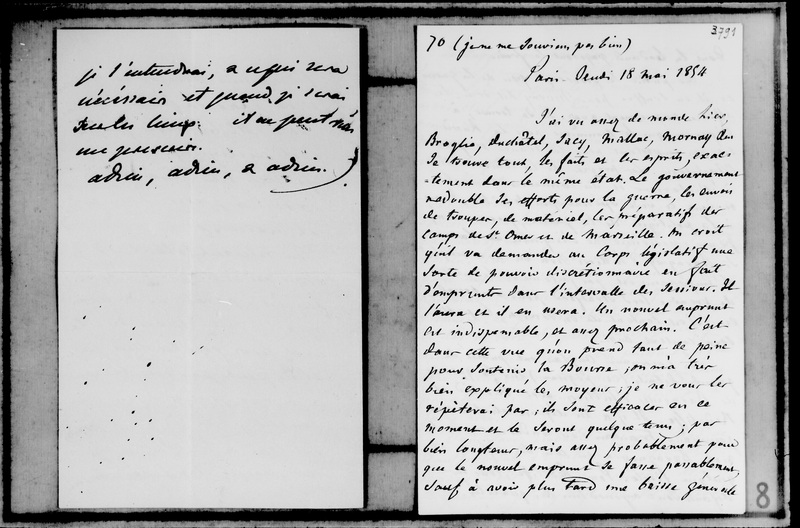 je l'entendrai, ce qui sera
nécessaire et quand je serai
il ne peut rien
me
adieu, adieu, adieu
3791
70 (je ne me souviens pas bien)
Paris. Jeudi 18 mai 1854
J'ai vu assez de monde hier,
Broglie, Duchâtel, Mallac, Mornay &c
Je trouve tout, les faits et les esprits, exac-
-tement dans le même état. Le gouvernement
redouble ses efforts pour la guerre, les envois
de troupes, de matériel, les préparatifs des
camps de St Omer et de Marseille. On croit
qu'il va demander au Corps législatif une
sorte de pouvoir discrétionnaire en fait
d'emprunts dans l'intervalle des sessions. Il
l'aura et il en usera. Un nouvel emprunt
est indispensable, et assez prochain. C'est
dans cette vue qu'on prend tant de peine
pour soutenir la Bourse ; on m'a très
bien expliqué les moyens ; je ne vous les
répèterai pas ; ils sont efficaces en ce
moment et le seront quelque tems ; pas
bien longtems, mais assez probablement pour
que le nouvel emprunt se fasse passablement,
sauf à avoir plus tard une baisse générale
8